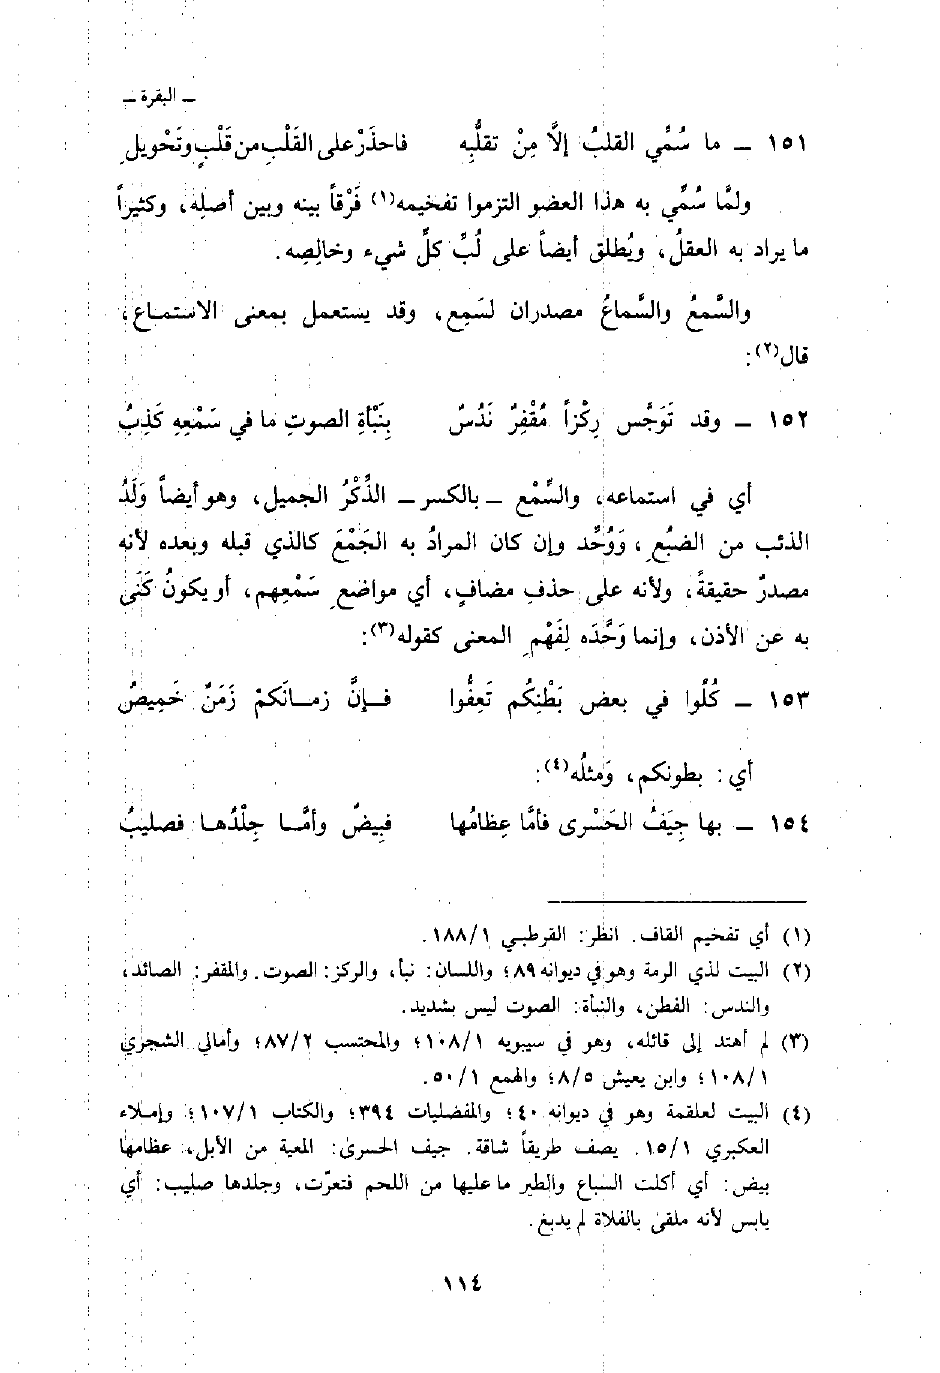 ـ البقرة ـ
١٥١ ـ ما سُمِّي القلبُ إلَّا مِنْ تقلُّبِه فاحذَرْ على القَلْبِ من قَلْبٍ وتَحْويلِ
ولمَّا سُمِّي به هذا العضو التزموا تفخيمه(١) فَرْقاً بينه وبين أصلِه، وكثيراً
ما يراد به العقلُ، ويُطلق أيضاً على لُبِّ كلِّ شيء وخالِصِه.
والسَّمعُ والسَّماعُ مصدران لسَمِع، وقد يستعمل بمعنى الاستماع،
قال(٢):
١٥٢ ـ وقد تَوَجَّس رِكْزاً مُقْفِرٌ نَدُسٌ بِنَبْأةِ الصوتِ ما في سَمْعِهِ كَذِبُ
أي في استماعه، والسِّمْع ـ بالكسر ـ الذِّكْرُ الجميل، وهو أيضاً وَلَدُ
الذئب من الضبُعِ، وَوُحِّد وإن كان المرادُ به الجَمْعَ كالذي قبله وبعده لأنه
مصدرٌ حقيقةً، ولأنه على حذفِ مضافٍ، أي مواضعِ سَمْعِهم، أو يكونُ كَنَى
به عن الأذن، وإنما وَحَّدَه لِفَهْمِ المعنى كقوله(٣):
١٥٣ ـ كُلُوا في بعض بَطْنِكُم تَعِفُّوا فـإنَّ زمـانَكمْ زَمَنٌ خَميصُ
أي: بطونكم، وَمثلُه(٤):
١٥٤ ـ بها جِيَفُ الحَسْرى فأمَّا عِظامُها فبِيضٌ وأمَّـا جِلْدُهـا فصليبُ
(١) أي تفخيم القاف. انظر: القرطبي ١/١٨٨.
(٢) البيت لذي الرمة وهو في ديوانه ٨٩؛ واللسان: نبأ، والركز: الصوت. والمقفر: الصائد،
والندس: الفطن، والنبأة: الصوت ليس بشديد.
(٣) لم أهتد إلى قائله، وهو في سيبويه ١/١٠٨؛ والمحتسب ٢/٨٧؛ وأمالي الشجري
١/١٠٨؛ وابن يعيش ٥/٨؛ والهمع ١/٥٠.
(٤) البيت لعلقمة وهو في ديوانه ٤٠؛ والمفضليات ٣٩٤؛ والكتاب ١/١٠٧؛ وإملاء
العكبري ١/١٥. يصف طريقاً شاقة. جيف الحسرى: المعية من الأبل، عظامها
بيض: أي أكلت السباع والطير ما عليها من اللحم فتعرّت، وجلدها صليب: أي
يابس لأنه ملقى بالفلاة لم يدبغ.
١١٤